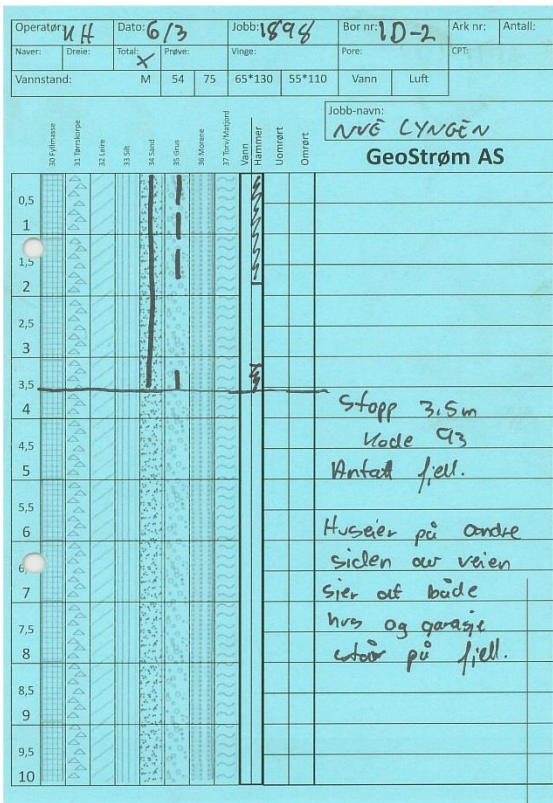 Operatør: KH Dato: 6/3 Jobb: 1898 Bor nr: 1D-2 Ark nr: Antall:
Naver: Dreie: Total: X Prøve: Vinge: Pore: CPT:
Vannstand: M 54 75 65*130 55*110 Vann Luft
Jobb-navn:
NVE LYNGEN
GeoStrøm AS
30 Fyllmasse
31 Tørrskorpe
32 Leire
33 Silt
34 Sand
35 Grus
36 Morene
37 Torv/Matjord
Vann
Hammer
Uomrørt
Omrørt
0,5
1
1,5
2
2,5
3
3,5
4
4,5
5
5,5
6
6
7
7,5
8
8,5
9
9,5
10
Stopp 3,5m
Kode 93
Antatt fjell.
Huseier på andre
siden av veien
sier at både
hus og garasje
står på fjell.